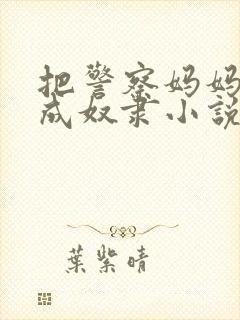 把警察妈妈
成奴隶小説
葉紫晴